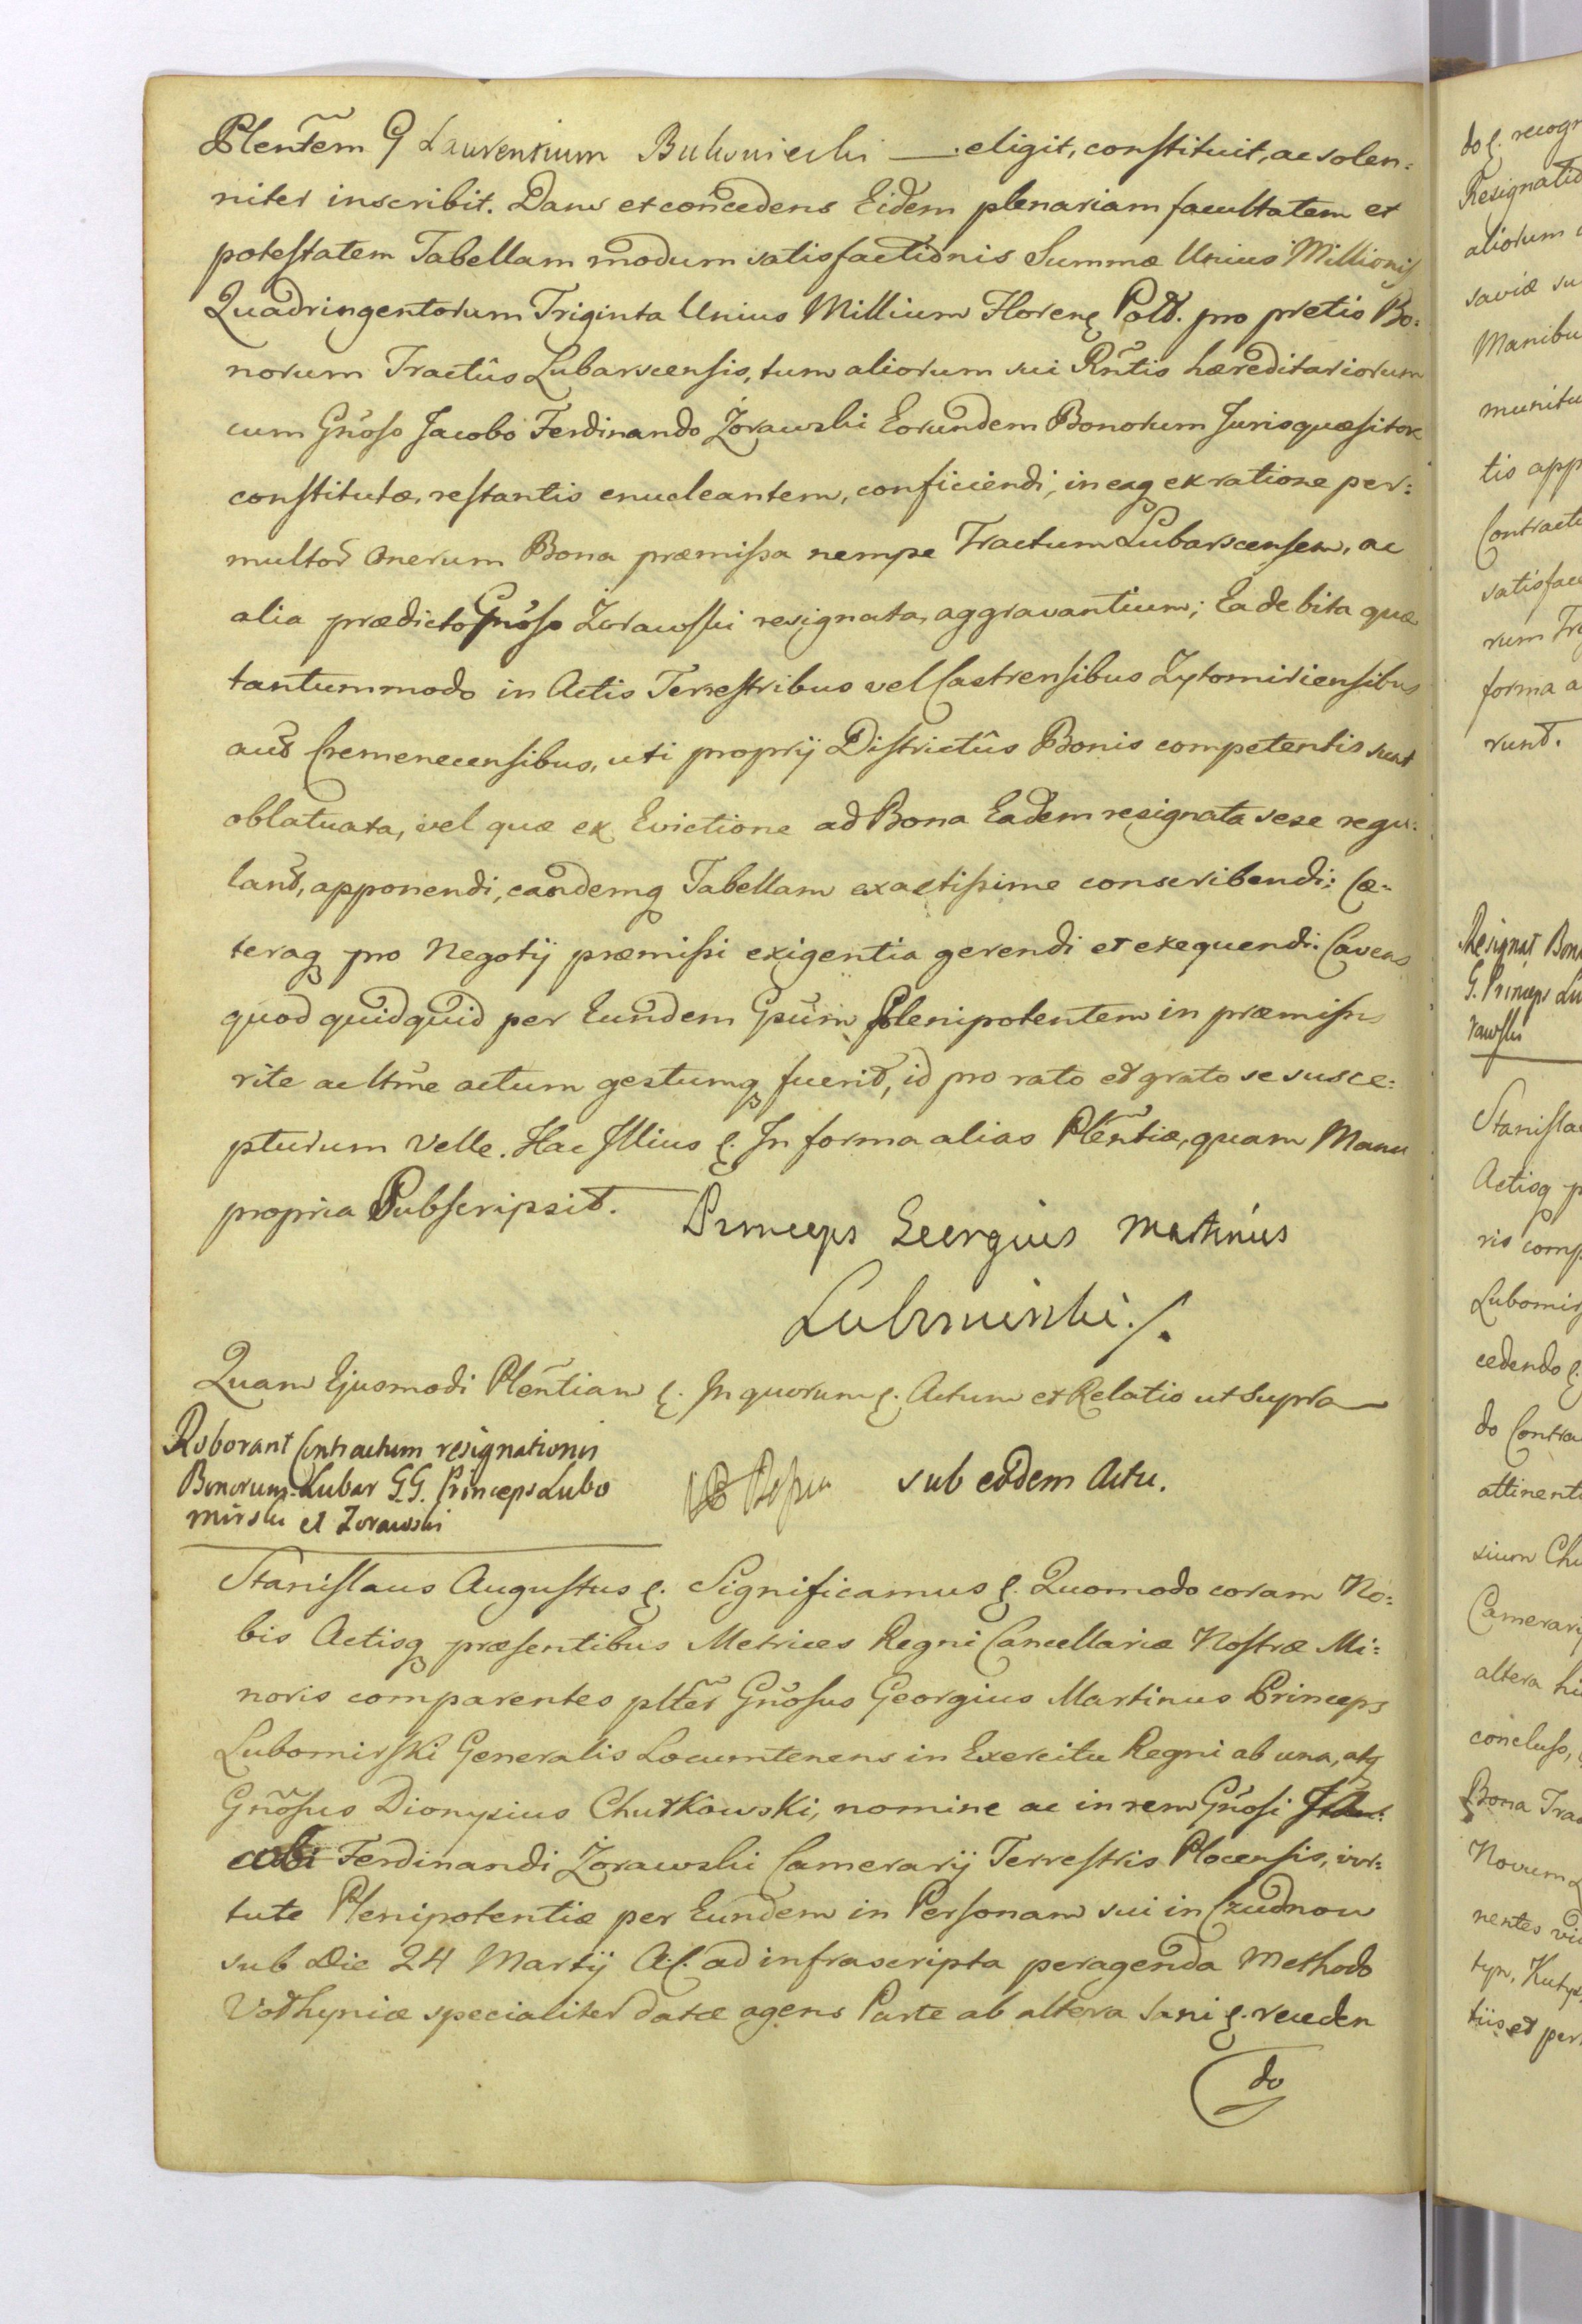 Plentem G Laurentium Bukowiecki — eligit, constituit, ac solen:
niter inscribit. Dans et concedens Eidem plenariam facultatem et
potestatem Tabellam modum satisfactionis Summæ Unius Millionis
Quadringentorum Triginta Unius Millium Floren Pold. pro pretio Bo:
norum Tractûs Lubarscensis, tum aliorum sui Rntis hæreditariorum
cum Gnoso Jacobo Ferdinando Żorawski Eorundem Bonorum Jurisquæsitore
constitutæ, restantis enucleantem, conficiendi, in eaq ex ratione per:
multor onerum Bona præmissa nempe Tractum Lubarscensem, ac
alia prædicto Gnoso Żorawski resignata, aggravantium; Ea debita quæ
tantummodo in Actis Terrestribus vel Castrensibus Zytomiriensibus
aut Cremenecensibus, uti proprij Districtûs Bonis competentis sunt
oblatuata, vel quæ ex Evictione ad Bona Eadem resignata sese regu:
lant, apponendi, eandemq Tabellam exactissime conscribendi; Cæ-
teraq pro Negotij præmissi exigentia gerendi et exequendi. Cavens
quod quidquid per Eundem Gsum Plenipotentem in præmissis
rite ac ltme actum gestumq fuerit, id pro rato et grato se susce:
pturum velle. Hac Illius &. In forma alias Plentiæ, quam Manu
propria Subscripsit.
Princeps Georgius Martinus
Lubomirski ./.
Quam Ejusmodi Plentiam &. In quorum &. Actum et Relatio ut supra
Roborant Contractum resignationis
Bonorum Lubar G.G. Princeps Lubo
mirski et Zorawski
sub eodem Actu.
Stanislaus Augustus &. Significamus &. Quomodo coram No:
bis Actisq præsentibus Metrices Regni Cancellariæ Nostræ Mi:
noris comparentes plter Gnosus Georgius Martinus Princeps
Lubomirski Generalis Locumtenens in Exercitu Regni ab una, atq
Gnosus Dionysius Chutkowski, nomine ac in rem Gnosi Ja:
cobi Ferdinandi Żorawski Camerarij Terrestris Plocensis, vir:
tute Plenipotentiæ per Eundem in Personam sui in Czudnow
sub Die 24 Martij A.C. ad infrascripta peragenda Methodo
Vodhyniæ specialiter datæ agens Parte ab altera Sani &. receden
do
do &. recogn
Resignatio
aliorum
saviæ su
Manibu
munitu
tis app
Contractu
satisfac
rum Tr
forma a
runt.
Resignat Bon
G. Princeps Lu
rawski
Stanisla
Actisq p
ris comp
Lubomir
cedendo &.
do Contra
attinenti
sium Chu
Camerarij
altera hi
concluso,
Bona Trac
Novum
nentes vi
tyn, Kuty
tiis et per